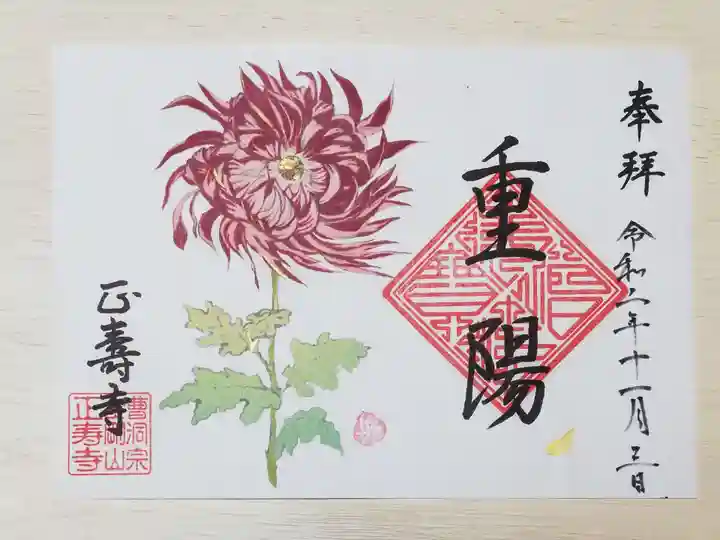 奉拝 令和二年十一月三日
重陽
正壽寺
曹洞宗
正寿寺